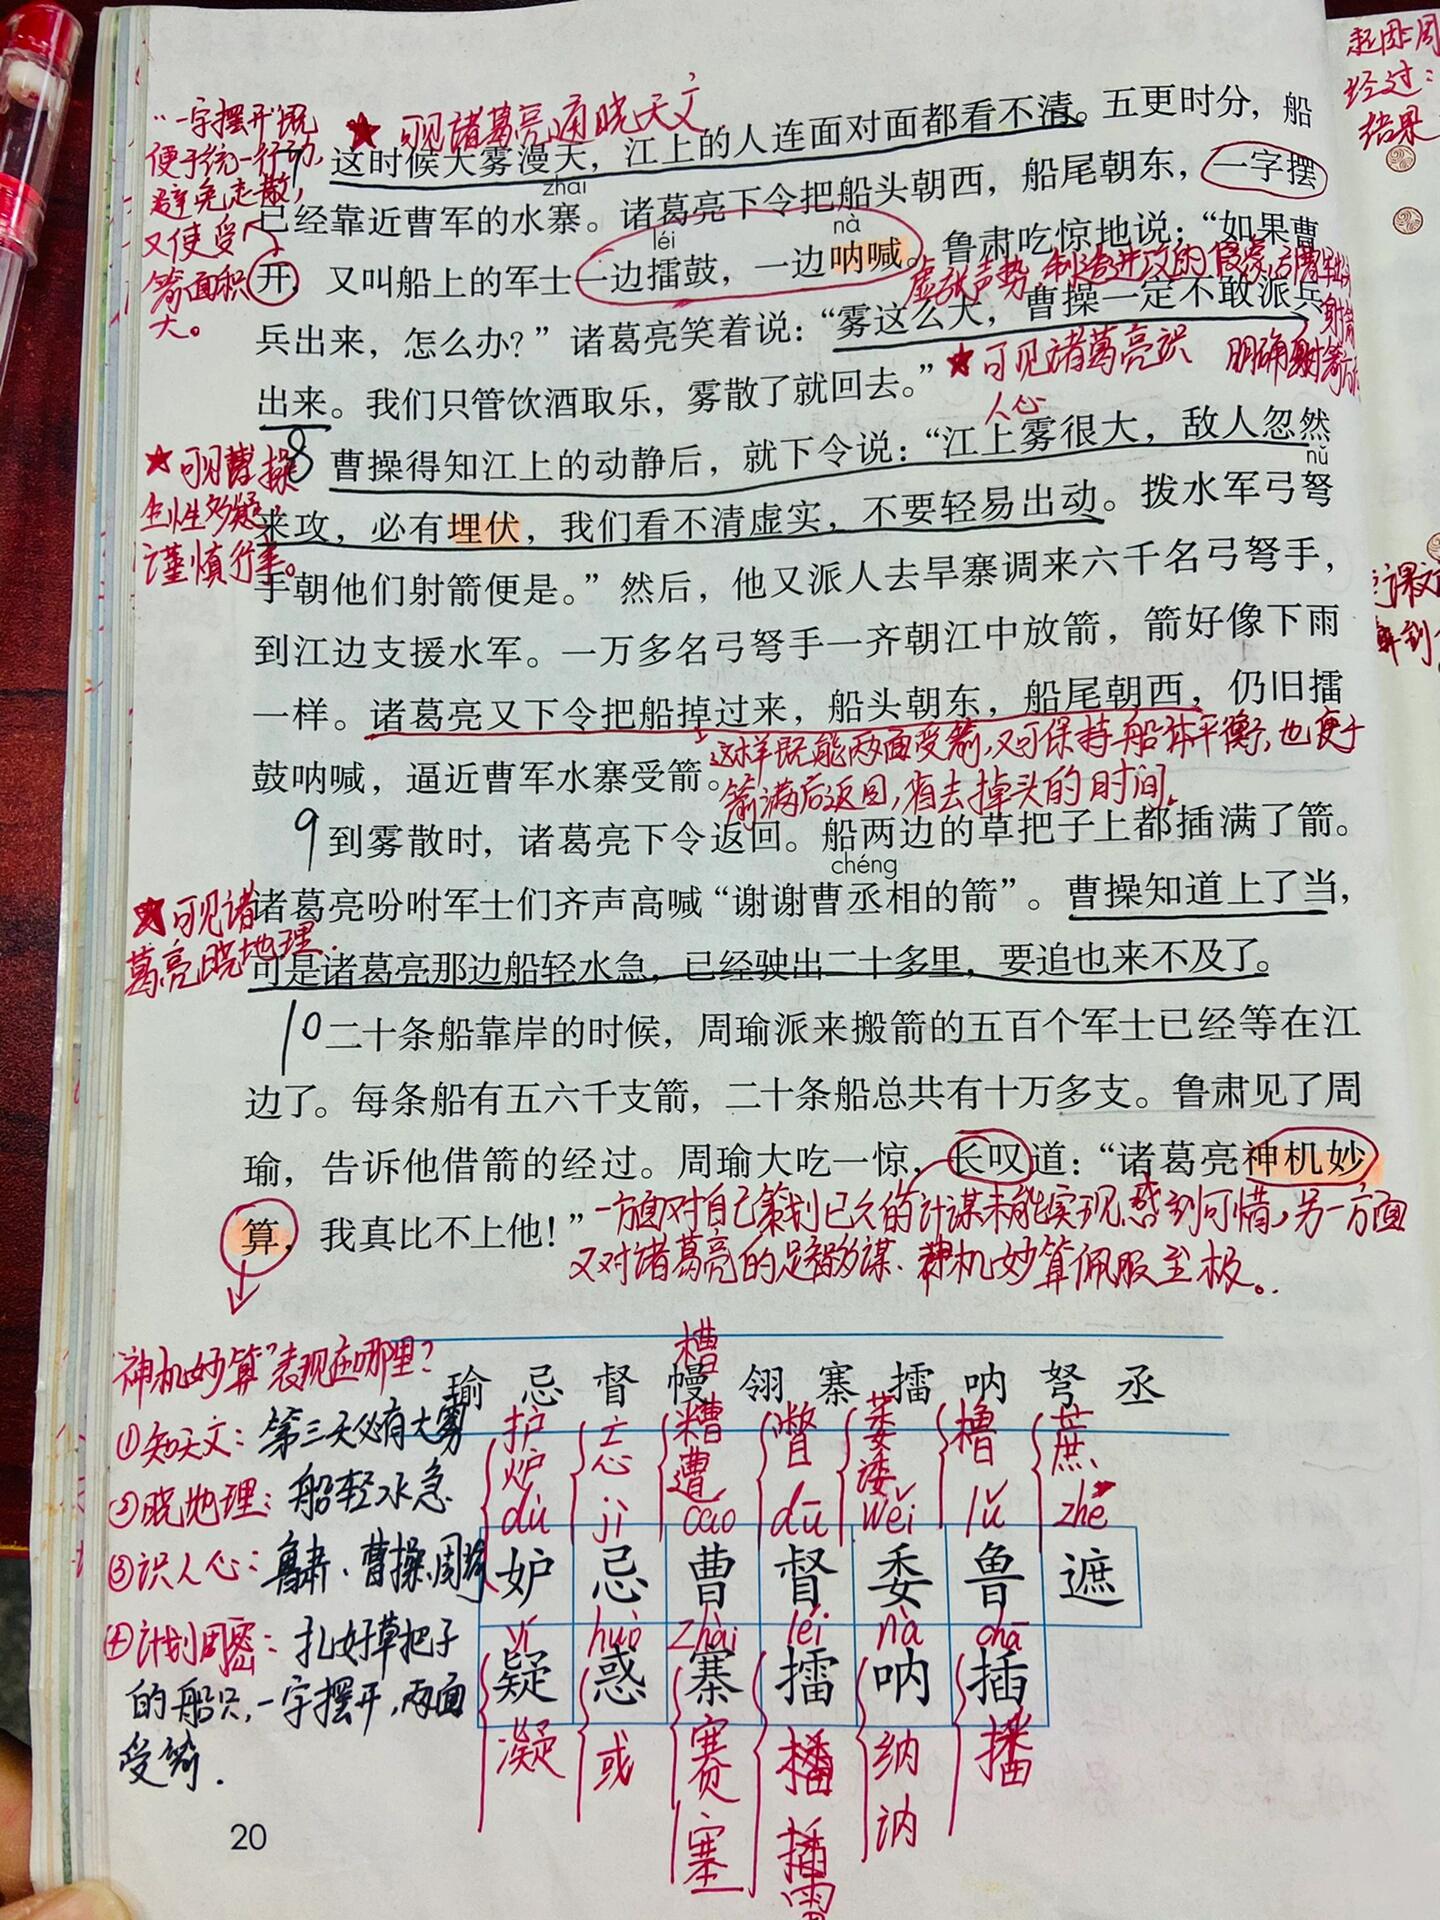 起因:周
经过:
结果
“一字摆开”既
便于统一行动,
避免走散,
又使受
箭面积
大。
★ 可见诸葛亮通晓天文
7 这时候大雾漫天，江上的人连面对面都看不清。五更时分，船
zhài
已经靠近曹军的水寨。诸葛亮下令把船头朝西，船尾朝东，一字摆
léi nà
开，又叫船上的军士一边擂鼓，一边呐喊。鲁肃吃惊地说：“如果曹
虚张声势,制造进攻的假象,引曹军出
射箭
兵出来，怎么办？”诸葛亮笑着说：“雾这么大，曹操一定不敢派兵
★可见诸葛亮识
人心
明确射箭方
出来。我们只管饮酒取乐，雾散了就回去。”
★可见曹操
生性多疑,
谨慎行事。
8 曹操得知江上的动静后，就下令说：“江上雾很大，敌人忽然
nǔ
来攻，必有埋伏，我们看不清虚实，不要轻易出动。拨水军弓弩
手朝他们射箭便是。”然后，他又派人去旱寨调来六千名弓弩手，
到江边支援水军。一万多名弓弩手一齐朝江中放箭，箭好像下雨
一样。诸葛亮又下令把船掉过来，船头朝东，船尾朝西，仍旧擂
这样既能两面受箭,又可保持船体平衡,也便于
箭满后返回,省去掉头的时间。
鼓呐喊，逼近曹军水寨受箭。
9 到雾散时，诸葛亮下令返回。船两边的草把子上都插满了箭。
chéng
★可见诸
葛亮晓地理.
诸葛亮吩咐军士们齐声高喊“谢谢曹丞相的箭”。曹操知道上了当，
可是诸葛亮那边船轻水急，已经驶出二十多里，要追也来不及了。
10 二十条船靠岸的时候，周瑜派来搬箭的五百个军士已经等在江
边了。每条船有五六千支箭，二十条船总共有十万多支。鲁肃见了周
瑜，告诉他借箭的经过。周瑜大吃一惊，长叹道：“诸葛亮神机妙
算，我真比不上他！”
一方面对自己策划已久的计谋未能实现感到可惜,另一方面
又对诸葛亮的足智多谋、神机妙算佩服至极。
“神机妙算”表现在哪里?
①知天文: 第三天必有大雾
②晓地理: 船轻水急
③识人心: 鲁肃、曹操、周瑜
④计划周密: 扎好草把子
的船只,一字摆开,两面
受箭.
瑜 忌 督 幔 翎 寨 擂 呐 弩 丞
槽
护 忘 糟 瞥 萎 橹 蔗
炉 遭 逶
dù jì cáo dū wěi lǔ zhē
妒 忌 曹 督 委 鲁 遮
yí huò zhài léi nà chā
疑 惑 寨 擂 呐 插
凝 或 赛 播 纳 播
塞 插 讷
雷
20
课文